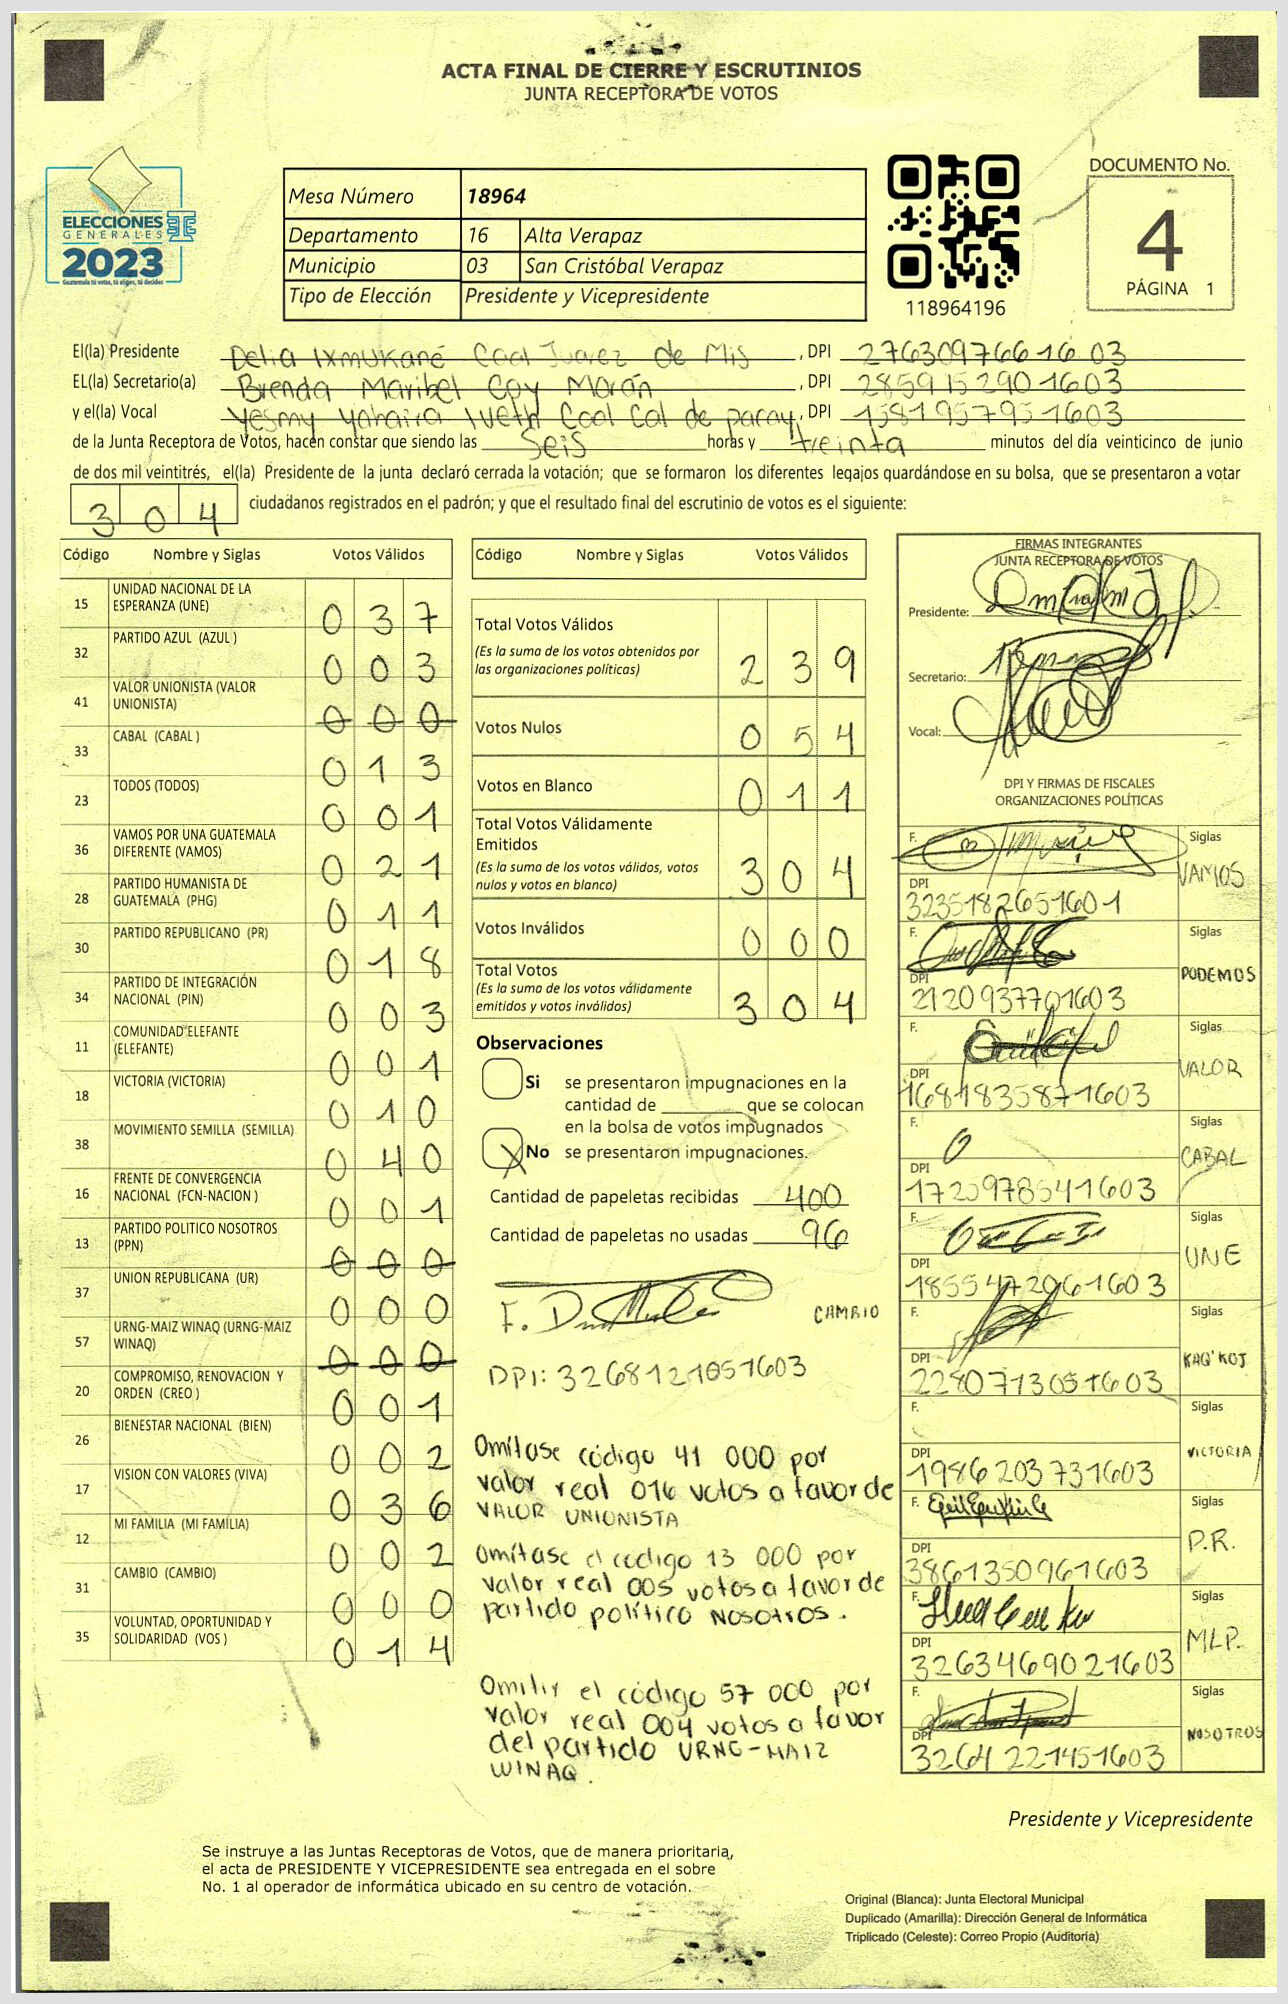 ACTA FINAL DE CIERRE Y ESCRUTINIOS
JUNTA RECEPTORA DE VOTOS
ELECCIONES
GENERALES
2023
Guatemala tú votas, tú eliges, tú decides
Mesa Número 18964
Departamento 16 Alta Verapaz
Municipio 03 San Cristóbal Verapaz
Tipo de Elección Presidente y Vicepresidente
118964196
DOCUMENTO No.
4
PÁGINA 1
El(la) Presidente Delia Ixmukané Caal Juarez de Mis, DPI 2763097661603
EL(la) Secretario(a) Brenda Maribel Coy Morán, DPI 2859152901603
y el(la) Vocal Yesmy Yahaira Iveth Caal Cal de pacay, DPI 1581957951603
de la Junta Receptora de Votos, hacen constar que siendo las seis horas y treinta minutos del día veinticinco de junio
de dos mil veintitrés, el(la) Presidente de la junta declaró cerrada la votación; que se formaron los diferentes legajos quardándose en su bolsa, que se presentaron a votar
304 ciudadanos registrados en el padrón; y que el resultado final del escrutinio de votos es el siguiente:
Código Nombre y Siglas Votos Válidos
15 UNIDAD NACIONAL DE LA ESPERANZA (UNE) 037
32 PARTIDO AZUL (AZUL ) 003
41 VALOR UNIONISTA (VALOR UNIONISTA) 000
33 CABAL (CABAL ) 013
23 TODOS (TODOS) 001
36 VAMOS POR UNA GUATEMALA DIFERENTE (VAMOS) 021
28 PARTIDO HUMANISTA DE GUATEMALA (PHG) 011
30 PARTIDO REPUBLICANO (PR) 018
34 PARTIDO DE INTEGRACIÓN NACIONAL (PIN) 003
11 COMUNIDAD ELEFANTE (ELEFANTE) 001
18 VICTORIA (VICTORIA) 010
38 MOVIMIENTO SEMILLA (SEMILLA) 040
16 FRENTE DE CONVERGENCIA NACIONAL (FCN-NACION ) 001
13 PARTIDO POLITICO NOSOTROS (PPN) 000
37 UNION REPUBLICANA (UR) 000
57 URNG-MAIZ WINAQ (URNG-MAIZ WINAQ) 000
20 COMPROMISO, RENOVACION Y ORDEN (CREO ) 001
26 BIENESTAR NACIONAL (BIEN) 002
17 VISION CON VALORES (VIVA) 036
12 MI FAMILIA (MI FAMILIA) 002
31 CAMBIO (CAMBIO) 000
35 VOLUNTAD, OPORTUNIDAD Y SOLIDARIDAD (VOS ) 014
Código Nombre y Siglas Votos Válidos
Total Votos Válidos 239
(Es la suma de los votos obtenidos por
las organizaciones políticas)
Votos Nulos 054
Votos en Blanco 011
Total Votos Válidamente
Emitidos 304
(Es la suma de los votos válidos, votos
nulos y votos en blanco)
Votos Inválidos 000
Total Votos 304
(Es la suma de los votos válidamente
emitidos y votos inválidos)
Observaciones
Si se presentaron impugnaciones en la
cantidad de ________ que se colocan
en la bolsa de votos impugnados
X No se presentaron impugnaciones.
Cantidad de papeletas recibidas 400
Cantidad de papeletas no usadas 96
F. CAMBIO
DPI: 3268121051603
Omítase código 41 000 por
valor real 016 votos a favor de
VALOR UNIONISTA
omítase el codigo 13 000 por
valor real 005 votos a favor de
partido político NOSOTROS.
Omitir el código 57 000 por
valor real 004 votos a favor
del partido URNG-MAIZ
WINAQ.
FIRMAS INTEGRANTES
JUNTA RECEPTORA DE VOTOS
Presidente:
Secretario:
Vocal:
DPI Y FIRMAS DE FISCALES
ORGANIZACIONES POLÍTICAS
F. Siglas VAMOS
DPI 3235182651601
F. Siglas PODEMOS
DPI 2120937701603
F. Siglas VALOR
DPI 1681835871603
F. Siglas CABAL
DPI 1725978541603
F. Siglas UNE
DPI 1855472061603
F. Siglas KAQ'KOJ
DPI 2280713051603
F. Siglas VICTORIA
DPI 1986203731603
F. Siglas P.R.
DPI 3861350961603
F. Siglas MLP.
DPI 3263469021603
F. Siglas NOSOTROS
DPI 3264221451603
Presidente y Vicepresidente
Se instruye a las Juntas Receptoras de Votos, que de manera prioritaria,
el acta de PRESIDENTE Y VICEPRESIDENTE sea entregada en el sobre
No. 1 al operador de informática ubicado en su centro de votación.
Original (Blanca): Junta Electoral Municipal
Duplicado (Amarilla): Dirección General de Informática
Triplicado (Celeste): Correo Propio (Auditoría)